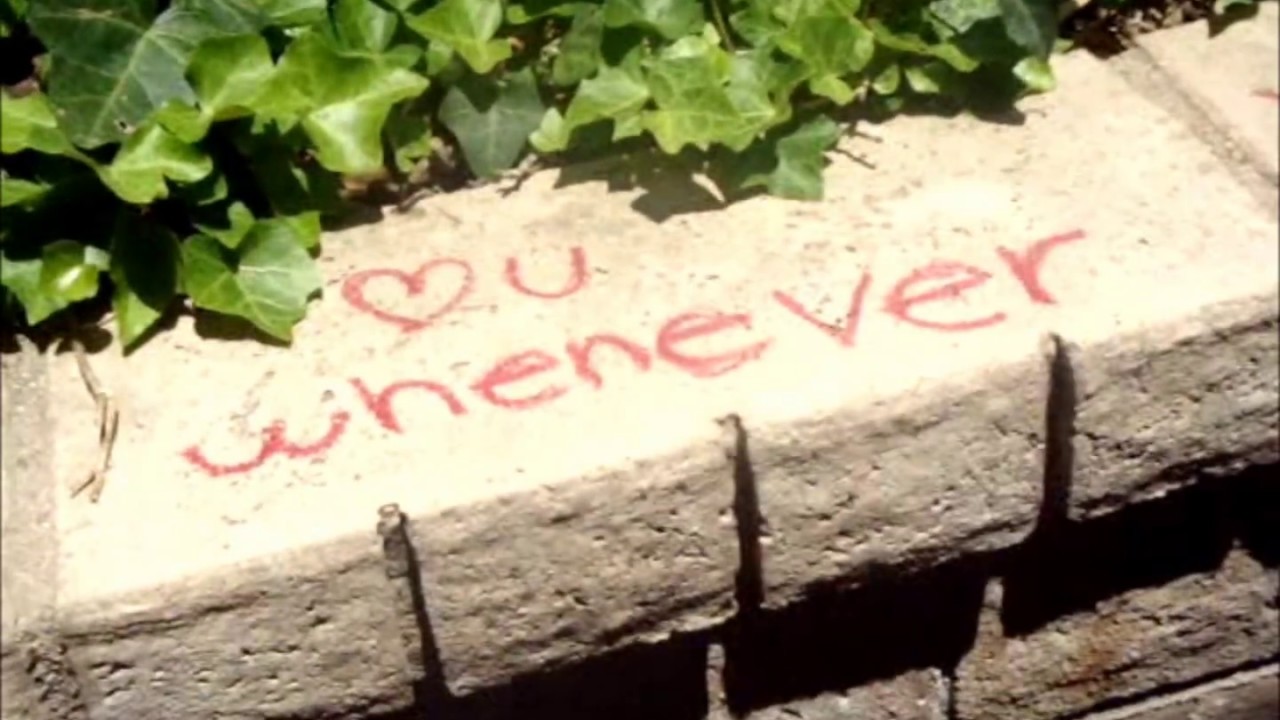 ♡ u
whenever